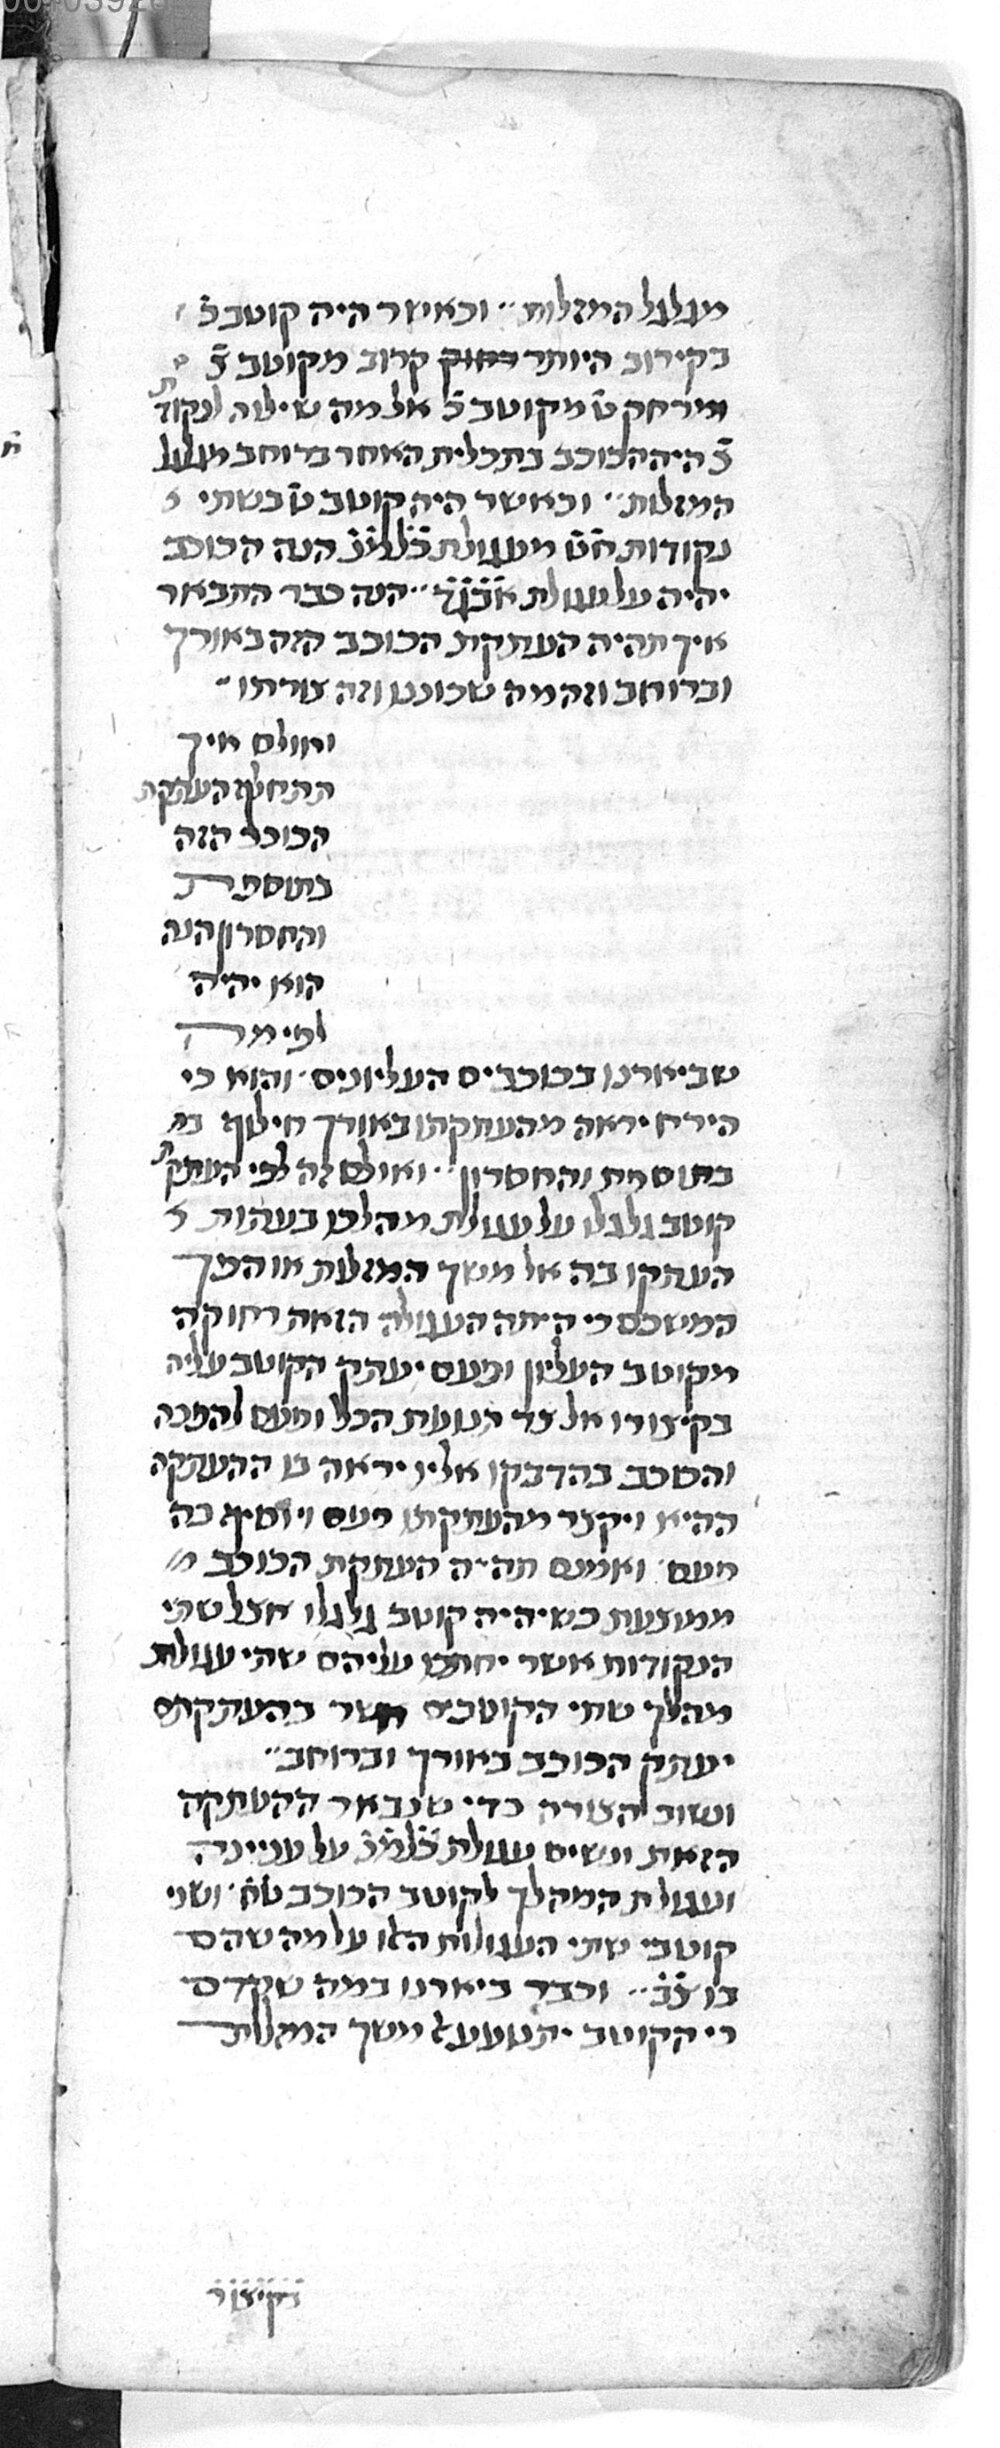 מגלגל המזלות·· וכאשר היה קוטב כ̇
בקירוב היותר קרוב מקוטב צ̇
וירחק ט̇ מקוטב כ̇ אל מה שילוה לנקודת
צ̇ היה הכוכב בתכלית האחר ברוחב מגלגל
המזלות·· וכאשר היה קוטב ט̇ בשתי
נקודות ח̇ט̇ מעגולת כ̇ל̇מ̇נ̇ הנה הכוכב
יהיה על עגולת א̇ב̇ג̇ד̇·· הנה כבר התבאר
איך תהיה העתקת הכוכב הזה באורך
וברוחב וזה מה שכווננו וזה צורתו··
ואולם איך
תתחלף העתקת
הכוכב הזה
בתוספת
והחסרון הנה
הוא יהיה
לפי מה
שביארנו בכוכבים העליונים· והוא כי
הירח יראה מהעתקתו באורך חילוף בת
בתוספת והחסרון·· ואולם זה לפי העתקת
קוטב גלגלו על עגולת מהלכו בעתות
העתקו בה אל משך המזלות או הפך
המשכם כי היתה העגולה הזאת רחוקה
מקוטב העליון ופעם יעתק הקוטב עליה
בקיצורו אל צד תנועת הכל ופעם להפכה
והכוכב בהדבקו אליו יראה בו ההעתקה
ההיא ויקצר מהעתקתו פעם ויוסיף בה
פעם· ואמנם תהיה העתקת הכוכב
ממוצעת כשיהיה קוטב גלגלו אצל שתי
הנקודות אשר יחתכו עליהם שתי עגולות
מהלך שתי הקוטבים אשר בהעתקתם
יעתק הכוכב באורך וברוחב··
ונשוב הצורה כדי שנבאר ההעתקה
הזאת ונשים עגולת כ̇ל̇מ̇נ̇ על עניינה
ועגולת המהלך לקוטב הכוכב ט̇ח̇· ושני
קוטבי שתי העגולות האלו על מה שהם
בו צ̇כ̇·· וכבר ביארנו במה שקדם
כי הקוטב יתנועע למשך המזלות
בקיצור